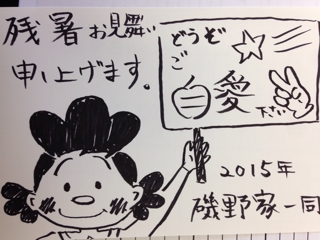 残暑お見舞い
申し上げます。
どうぞ
ご
自愛
下さい
2015年
磯野家一同